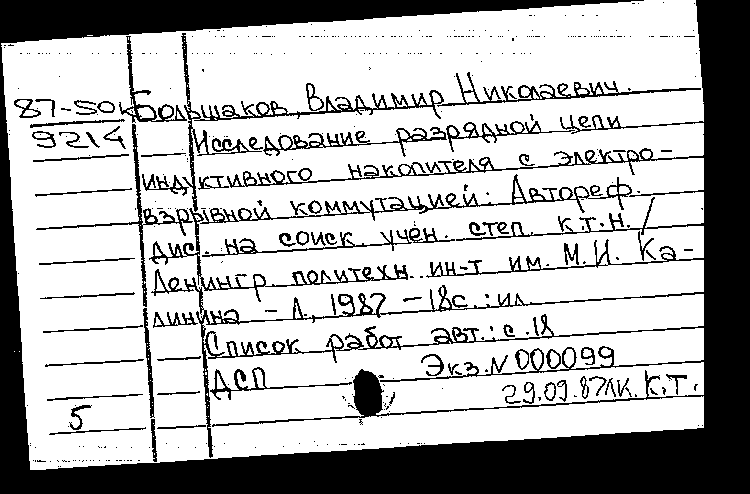 87-50к Большаков, Владимир Николаевич.
9214 Исследование разрядной цепи
индуктивного накопителя с электро-
взрывной коммутацией: Автореф.
дис. на соиск. учен. степ. к.т.н. /
Ленингр. политехн. ин-т им. М.И. Ка-
линина - Л., 1987 - 18с.: ил.
Список работ авт.: с.18
ДСП Экз. № 000099
5 29.09.87 К.Т.